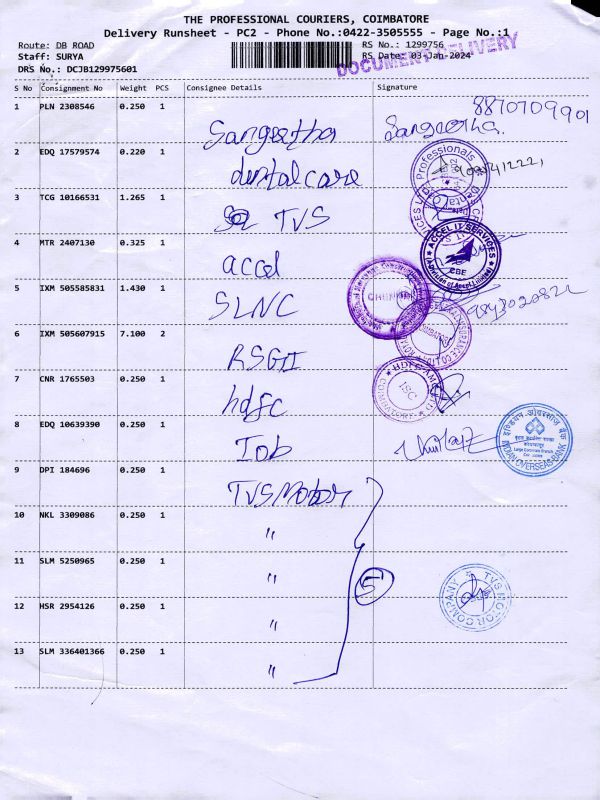 THE PROFESSIONAL COURIERS, COIMBATORE
Delivery Runsheet - PC2 - Phone No.:0422-3505555 - Page No.:1
Route: DB ROAD
RS No.: 1299756
Staff: SURYA
RS Date: 03-Jan-2024
DOCUMENT DELIVERY
DRS No.: DCJB129975601
S No Consignment No Weight PCS Consignee Details Signature
8870709901
1 PLN 2308546 0.250 1 Sangeetha Sangeetha.
2 EDQ 17579574 0.220 1 dental care
3 TCG 10166531 1.265 1 TVS
4 MTR 2407130 0.325 1 accel
ACCEL IT SERVICES
CBE
5 IXM 505585831 1.430 1 SLNC
6 IXM 505607915 7.100 2 RSGI
7 CNR 1765503 0.250 1 hdfc
HDFC
ISC
COIMBATORE
8 EDQ 10639390 0.250 1 Iob
इण्डियन ओवरसीज़ बैंक
INDIAN OVERSEAS BANK
9 DPI 184696 0.250 1 TVS Motor
10 NKL 3309086 0.250 1 "
11 SLM 5250965 0.250 1 "
5
TVS MOTOR COMPANY
12 HSR 2954126 0.250 1 "
13 SLM 336401366 0.250 1 "